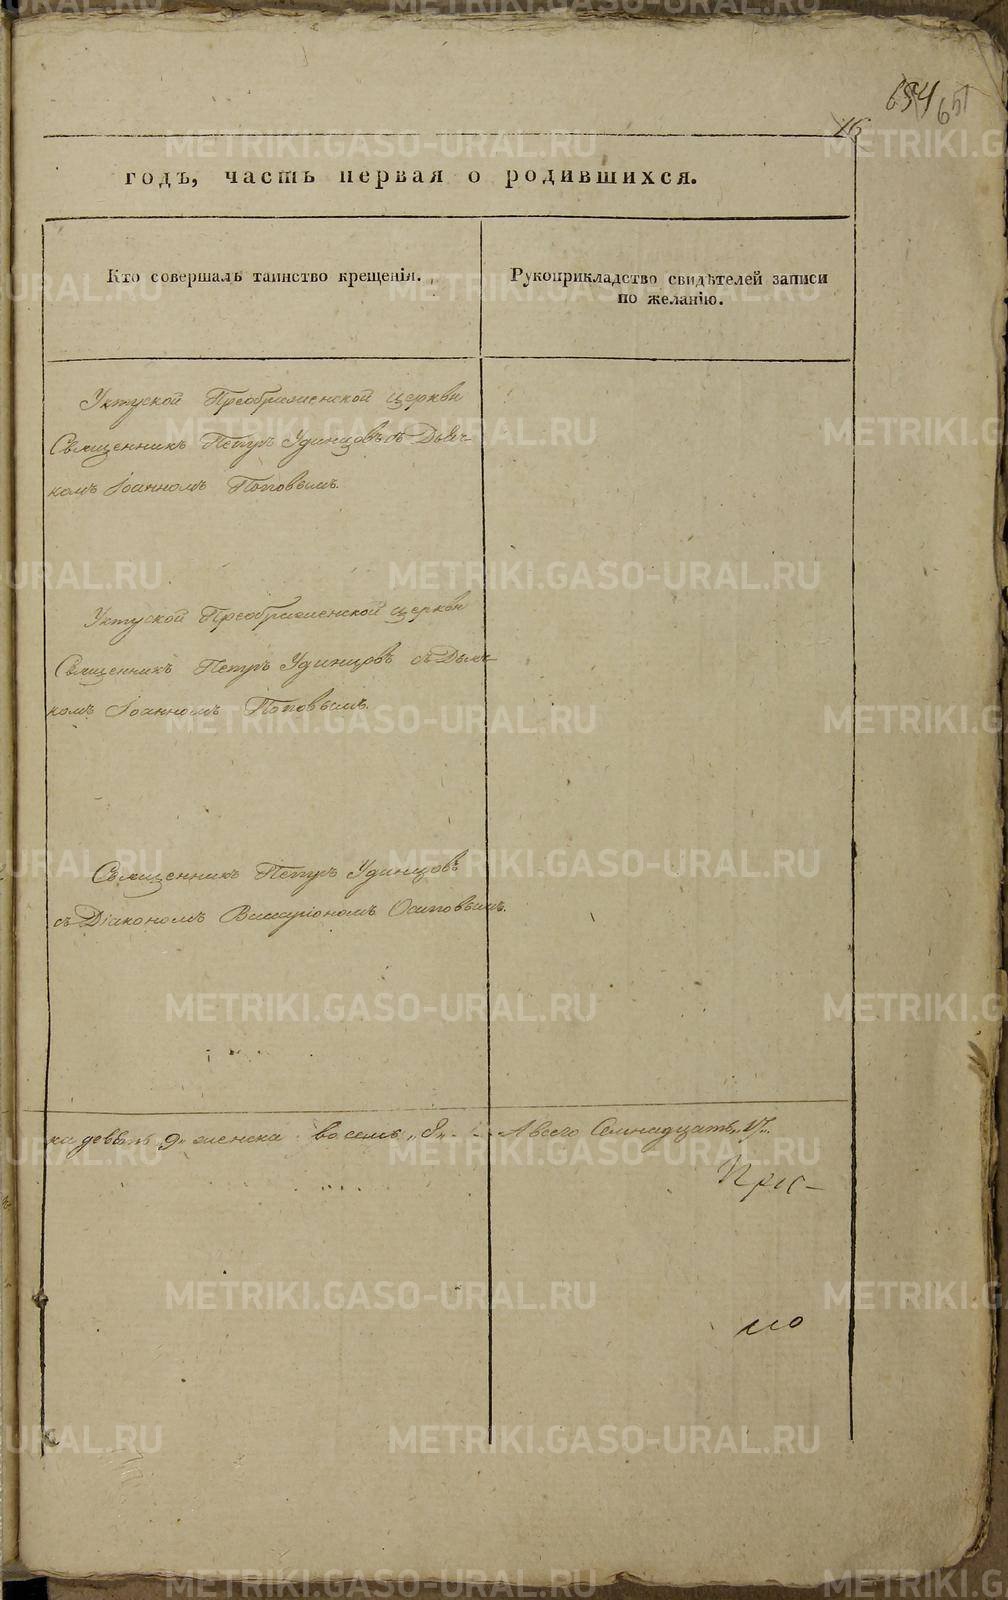 654 651
16
годъ, часть первая о родившихся.
Кто совершалъ таинство крещенія.
Рукоприкладство свидѣтелей записи
по желанію.
Уктуской Преображенской церкви
Священникъ Петръ Удинцовъ съ Дьяч-
комъ Іоанномъ Поповымъ.
Уктуской Преображенской церкви
Священникъ Петръ Удинцовъ съ Дьяч-
комъ Іоанномъ Поповымъ.
Священникъ Петръ Удинцовъ
съ Діакономъ Виссаріономъ Осиповымъ.
ка девять 9. женска восемь „8„ А всего Семнадцать „17„.
METRIKI.GASO-URAL.RU